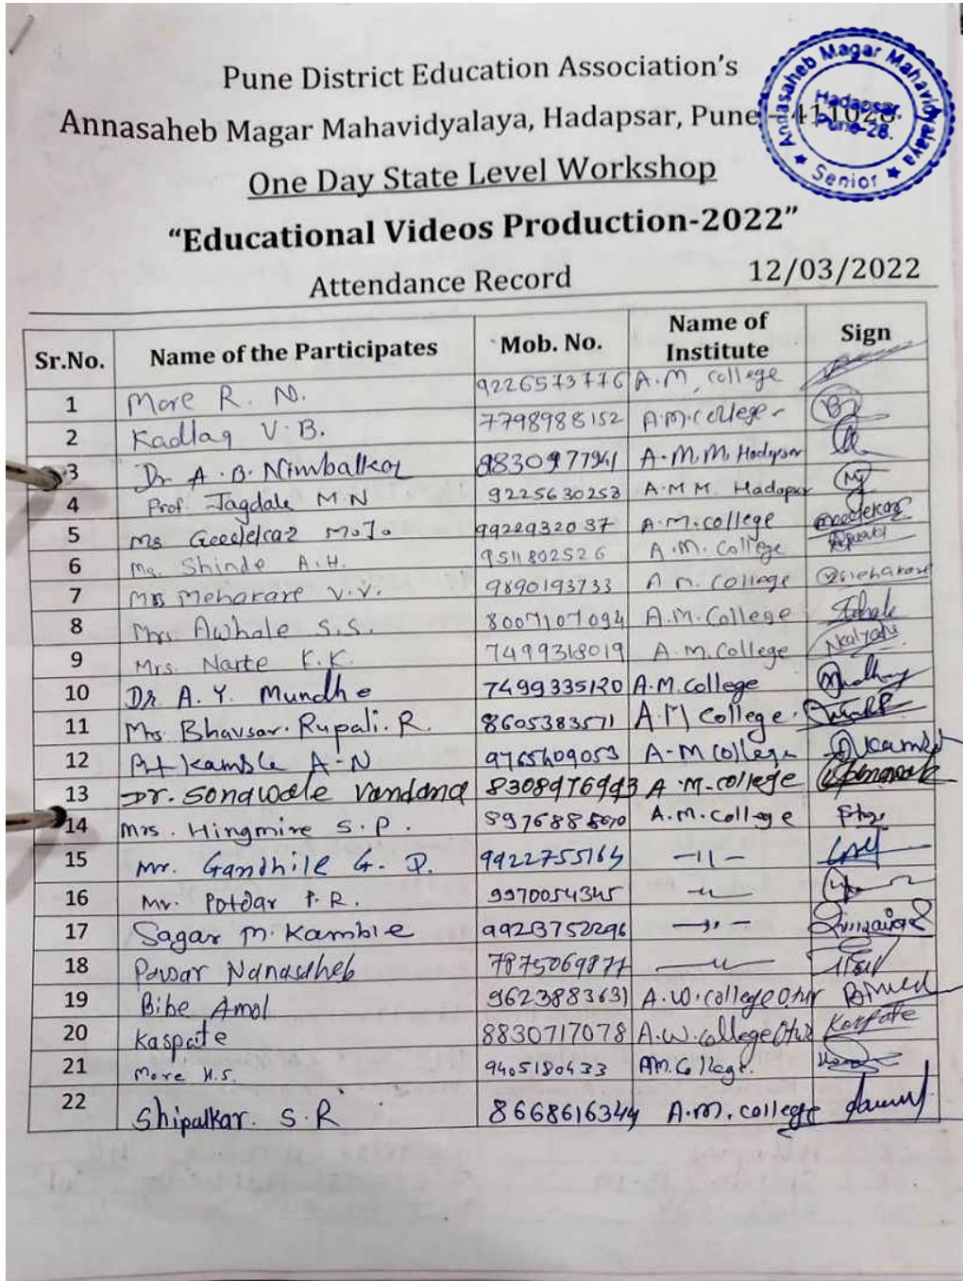 Pune District Education Association's
Annasaheb Magar Mahavidyalaya, Hadapsar, Pune - 411028
Annasaheb Magar Mahavidyalaya
Hadapsar, Pune-28.
Senior
One Day State Level Workshop
“Educational Videos Production-2022”
Attendance Record 12/03/2022
Sr.No. Name of the Participates Mob. No. Name of Institute Sign
1 More R. N. 9226573776 A.M. College
2 Kadlag V.B. 7798988152 A.M.College
3 Dr A.B. Nimbalkar A.M.M. Hadapsar
4 Prof. Jagdale M.N 9225630253 A.M.M. Hadapsar
5 Ms 9922932037 A.M.College
6 Ms. Shinde A.H. 9511802526 A.M. College
7 Mrs Meharare V.V. 9890193733 A.M. College
8 Mrs Awhale S.S. 8007107094 A.M.College
9 Mrs. Narte K.K. 7499318019 A.M.College
10 Dr A.Y. Mundhe 7499335120 A.M.College
11 Mrs Bhavsar. Rupali. R. 8605383571 A.M College.
12 Kamble A-N 9765409053 A-M College
13 Dr. Sonawale Vandana A.M.College
14 Mrs. Hingmire S.P. A.M.College
15 Mr. Gandhile G. D. 9922755164 -11-
16 Mr. Potdar P.R. 9970054345 -11-
17 Sagar M. Kamble 9923752296 -11-
18 Pawar Nanasaheb 7875069877 -11-
19 Bibe Amol 9623883631 A.W.College Otur
20 Kaspate 8830717078 A.W.College Otur Kaspate
21 More H.S. 9405180433 AM.College.
22 Shipalkar. S.R 8668616344 A.M.college